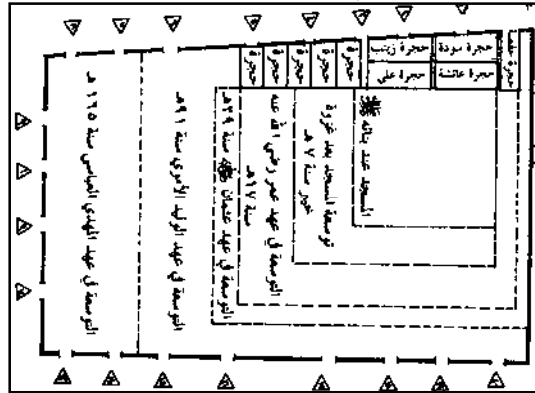 حجرة حفصة
حجرة سودة
حجرة زينب
حجرة عائشة
حجرة علي
حجرة
حجرة
حجرة
حجرة
حجرة
المسجد عند بنائه ﷺ
توسعة المسجد بعد غزوة
خيبر سنة ٧ هـ
التوسعة في عهد عمر رضي الله عنه
سنة ١٧ هـ
التوسعة في عهد عثمان سنة ٢٩ هـ
التوسعة في عهد الوليد الأموي سنة ٩١ هـ
التوسعة في عهد المهدي العباسي سنة ١٦٥ هـ